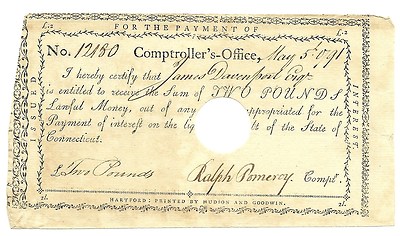 FOR THE PAYMENT OF
£.2 £.2
No. 12480 Comptroller's-Office, May 5th 1791
I hereby certify that James Davenport Esqr
is entitled to receive the Sum of TWO POUNDS
Lawful Money, out of any appropriated for the
Payment of interest on the of the State of
Connecticut.
£ Two Pounds Ralph Pomeroy Compt.
2l. 2l.
HARTFORD: PRINTED BY HUDSON AND GOODWIN.
ISSUED
INTEREST